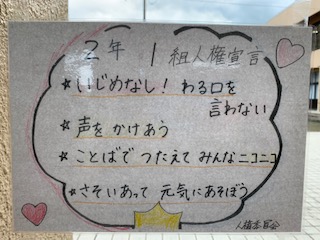 2年 1組人権宣言
☆いじめなし! わる口を
言わない
☆声を かけあう
☆ことばで つたえて みんなニコニコ
☆さそいあって 元気にあそぼう
人権委員会